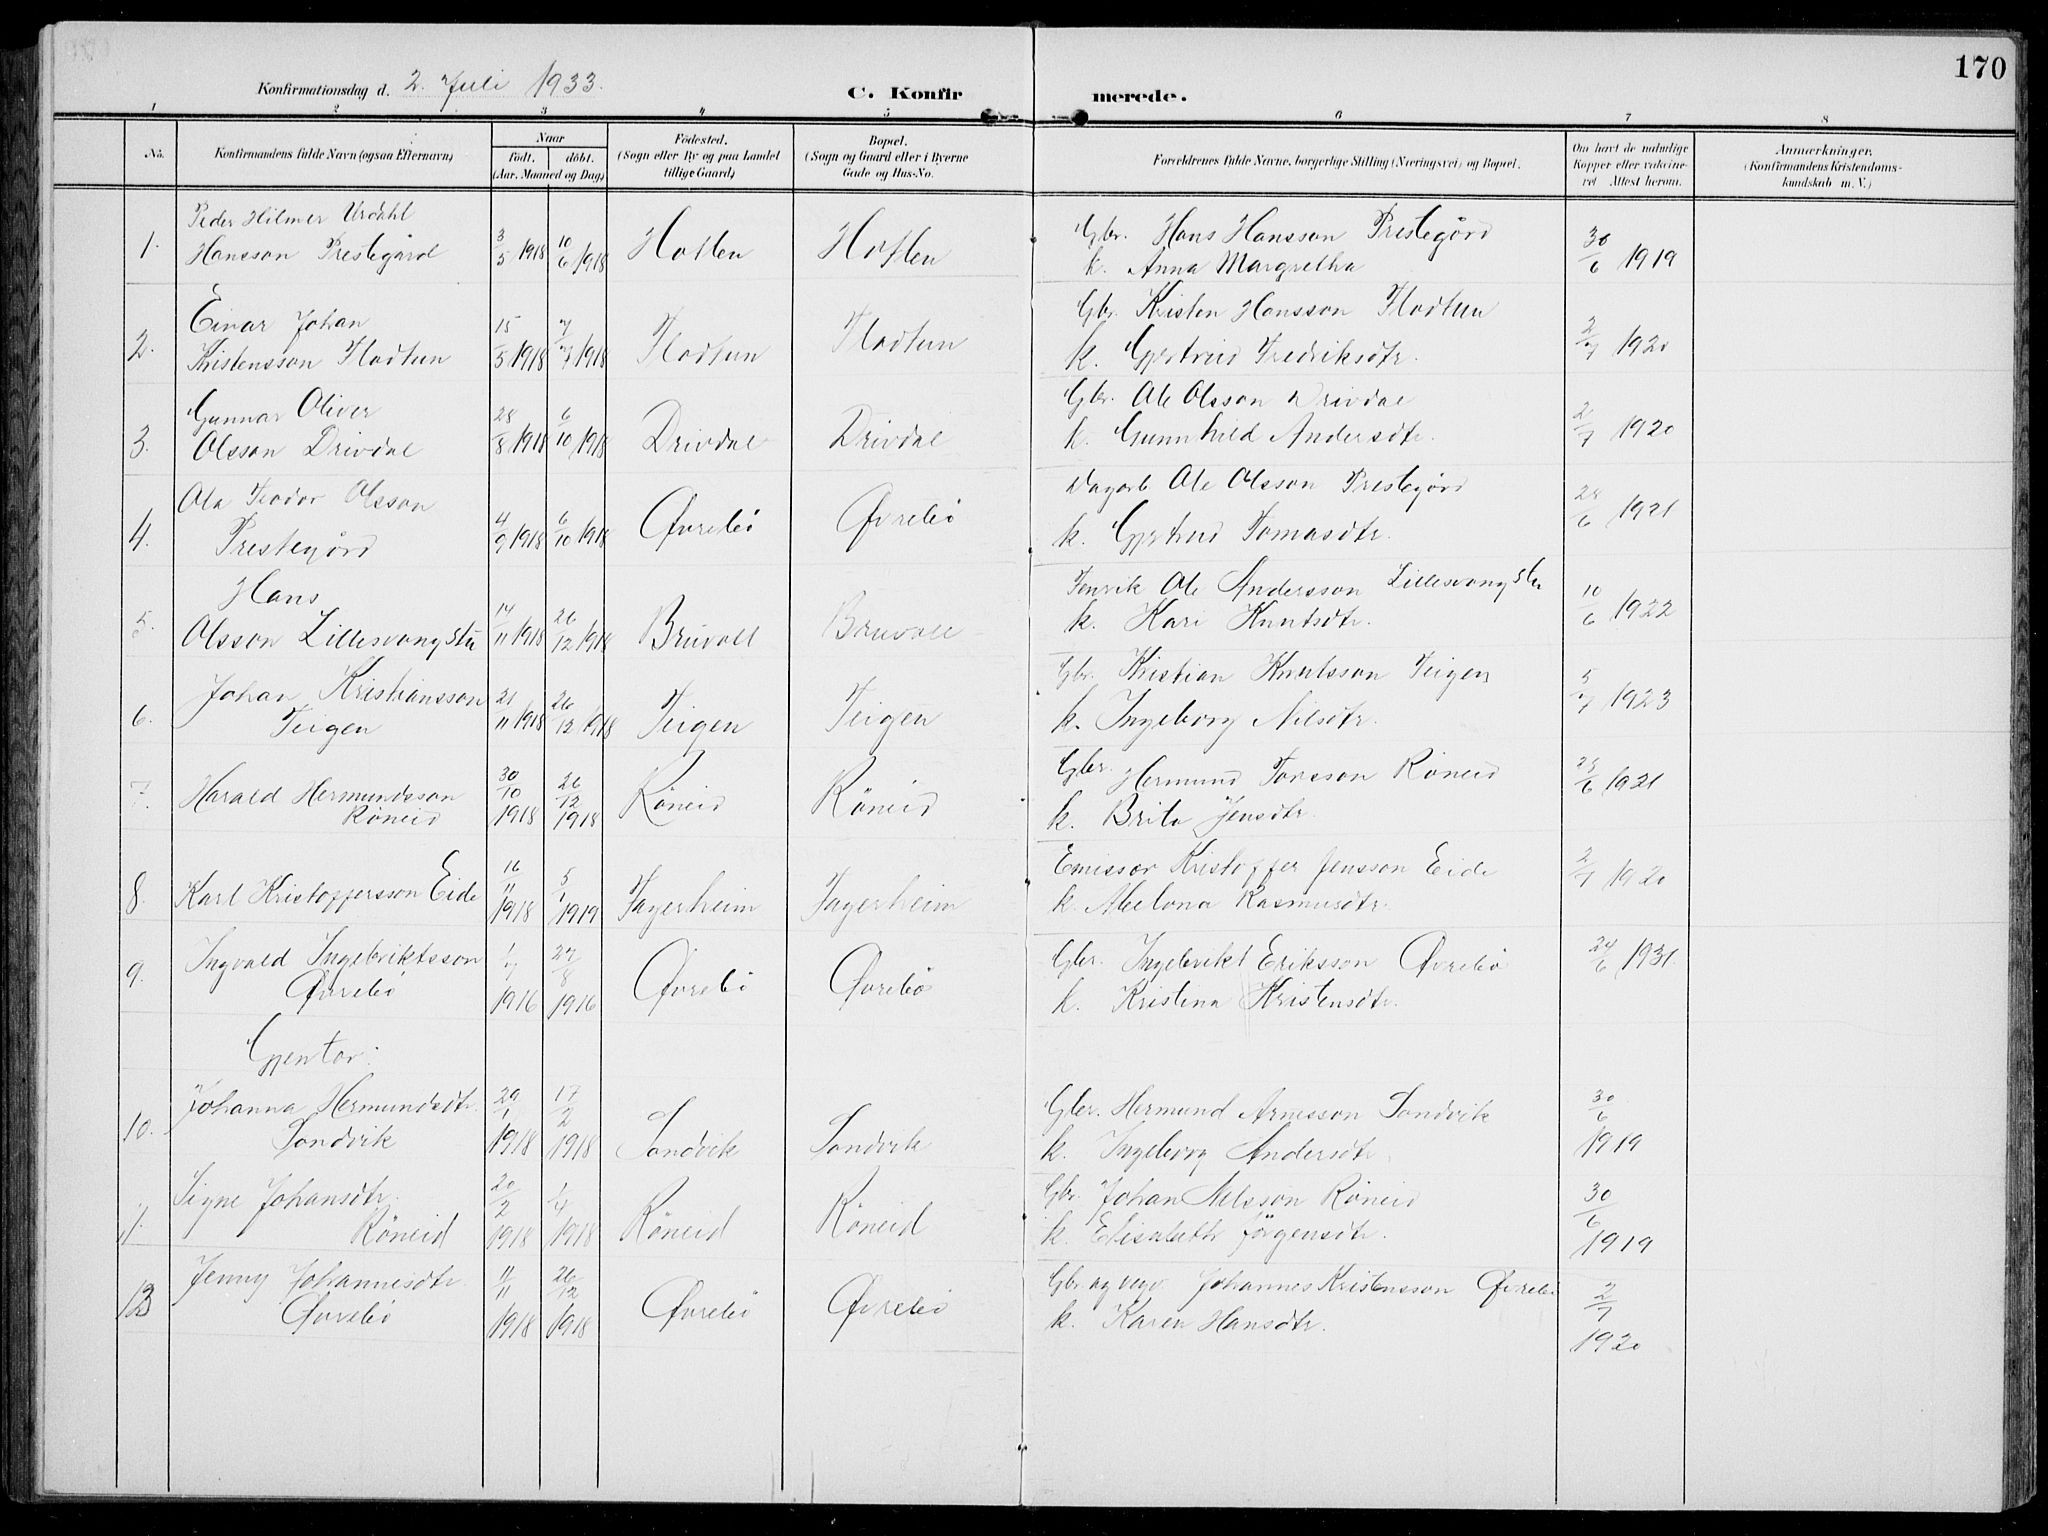 170
Konfirmationsdag d. 2. Juli 1933.
C. Konfirmerede.
1 2 3 4 5 6 7 8
No.
Konfirmandens fulde Navn (ogsaa Efternavn)
Naar
födt. döbt.
(Aar, Maaned og Dag)
Födested.
(Sogn eller By og paa Landet
tillige Gaard)
Bopæl.
(Sogn og Gaard eller i Byerne
Gade og Hus-No.
Forældrenes fulde Navne, borgerlige Stilling (Næringsvei) og Bopæl.
Om havt de naturlige
Kopper eller vaccine-
ret Attest herom.
Anmærkninger.
(Konfirmandens Kristendoms-
kundskab m. V.)
Peder Hilmer Urdahl Gbr. Hans Hansson Prestegård
1. Hansson Prestegård 3/5 1918 10/6 1918 Hoflen Hoflen k. Anna Margretha 30/6 1919
Einar Johan Gbr. Kristen Hansson Flodtun
2. Kristensson Flodtun 15/5 1918 7/7 1918 Flodtun Flodtun k. Gjertrud Fredriksdtr. 2/7 1920
Gunnar Oliver Gbr. Ole Olsson Drivdal
3. Olsson Drivdal 28/8 1918 6/10 1918 Drivdal Drivdal k. Gunnhild Andersdtr. 2/7 1920
Ola Teodor Olsson Dagarb. Ole Olsson Prestegård
4. Prestegård 4/9 1918 6/10 1918 Øvrebö Øvrebö k. Gjertrud Tomasdtr. 28/6 1921
Hans Ole Andersson Lillesvangstu
5. Olsson Lillesvangstu 14/11 1918 26/12 1918 Bruvoll Bruvoll k. Kari Knutsdtr. 10/6 1922
Johan Kristiansson Gbr. Kristian Knutsson Teigen
6. Teigen 21/11 1918 26/12 1918 Teigen Teigen k. Ingeborg Nilsdtr. 5/7 1923
7. Harald Hermundsson Gbr. Hermund Torsson Röneid
Röneid 30/10 1918 26/12 1918 Röneid Röneid k. Brita Jensdtr. 28/6 1921
Emissær Kristoffer Jensson Eide
8. Karl Kristoffersson Eide 16/11 1918 5/1 1919 Fagerheim Fagerheim k. Abelona Rasmusdtr. 2/7 1920
Ingvald Ingebriktsson Gbr. Ingebrikt Eriksson Øvrebö
9. Øvrebö 1/7 1916 27/8 1916 Øvrebö Øvrebö k. Kristina Kristensdtr. 24/6 1931.
Gjentor:
Johanna Hermundsdtr. Gbr. Hermund Arnesson Sandvik
10. Sandvik 29/1 1918 17/2 1918 Sandvik Sandvik k. Ingeborg Andersdtr. 30/6 1919
Signe Johansdtr. Gbr. Johan Nilsson Röneid
11. Röneid 20/2 1918 1/4 1918 Röneid Röneid k. Elisabeth Jörgensdtr. 30/6 1919
Jenny Johannesdtr. Gbr. og Johannes Kristensson Øvrebö
Øvrebö 11/11 1918 26/12 1918 Øvrebö Øvrebö k. Karen Hansdtr. 2/7 1920